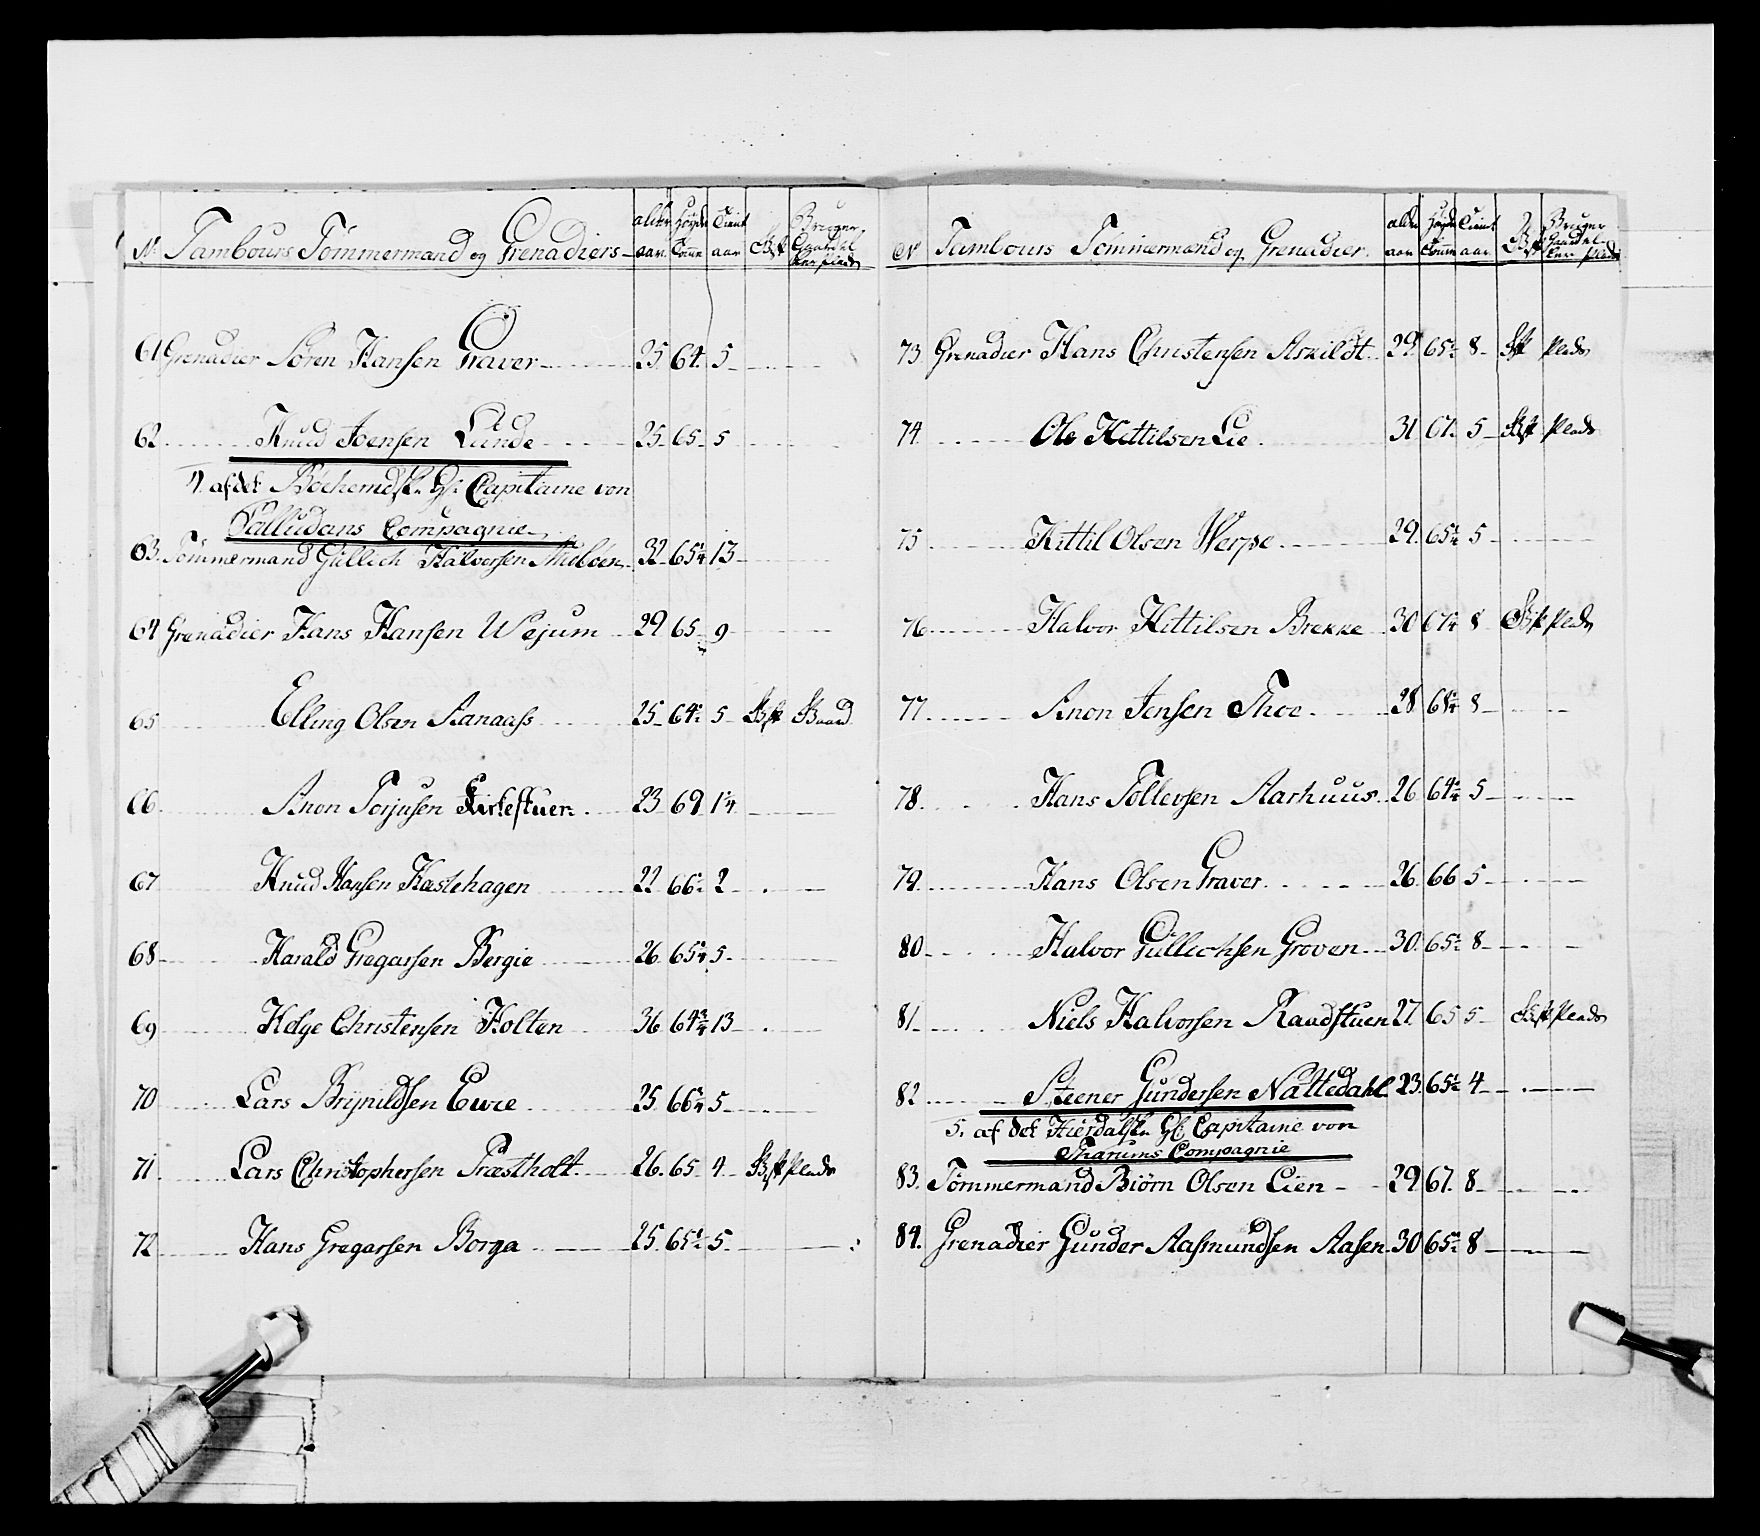 No Tambours Tömmermænd og Grenadiers alder aar höyde Tomer Tient aar Gift Bruger Gaard el. ler plads
61 Grenadier Sören Hansen Graver 25 64 5
62 Knud Joensen Lunde 25 65 5
4. af det Böehernedsk. Gf: Capitaine von
Palludans Compagnie
63. Tömmermand Gullich Halvorsen Moloen 32 65¼ 13
64 Grenadier Hans Hansen Wejum 29 65 9
65 Elling Olsen Aanaass 25 64½ 5 Gift Gaard
66 Anon Torjusen Kirkestuen 23 69 1¼
67 Knud Hansen Hastehagen 22 66½ 2
68 Harald Gregarsen Bergie 26 65¼ 5
69 Helge Christensen Holten 36 64¾ 13
70 Lars Brynildsen Ewie 25 66¼ 5
71 Lars Christophersen Præstholt 26 65 4 Gift Plads
72 Hans Gregarsen Borga 25 65½ 5
No Tambours Tömmermænd og Grenadier alder aar höyde Tomer Tient aar Gift Bruger Gaard el- ler plads
73 Grenadier Hans Christensen Askildt 29 65½ 8 Gift Plads
74 Ole Kittilsen Lie 31 67 5 Gift Plads
75 Kittil Olsen Werpe 29 65¼ 5
76 Halvor Kittilsen Brekke 30 67¼ 8 Gift Plads
77 Anon Jensen Thoe 28 68¼ 8
78 Hans Tollevsen Aarhuus 26 64¼ 5
79 Hans Olsen Graver 26 66 5
80 Halvor Gullichsen Groven 30 65½ 8
81 Niels Halvorsen Raadstuen 27 65 5 Gift Plads
82 Steener Gundersen Nattedahl 23 65½ 4
5. af det Hierdalsk. Gf Capitaine von
Tharums Compagnie
83. Tömmermand Biörn Olsen Lien 29 67 8
84. Grenadier Gunder Aasmundsen Aasen 30 65½ 8